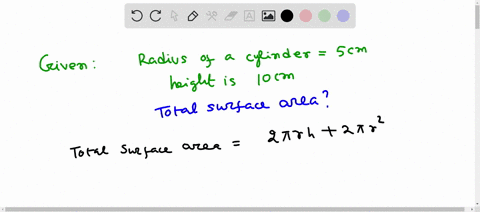 Given: Radius of a cylinder = 5cm
height is 10cm
Total surface area?
Total surface area = 2πrh + 2πr²